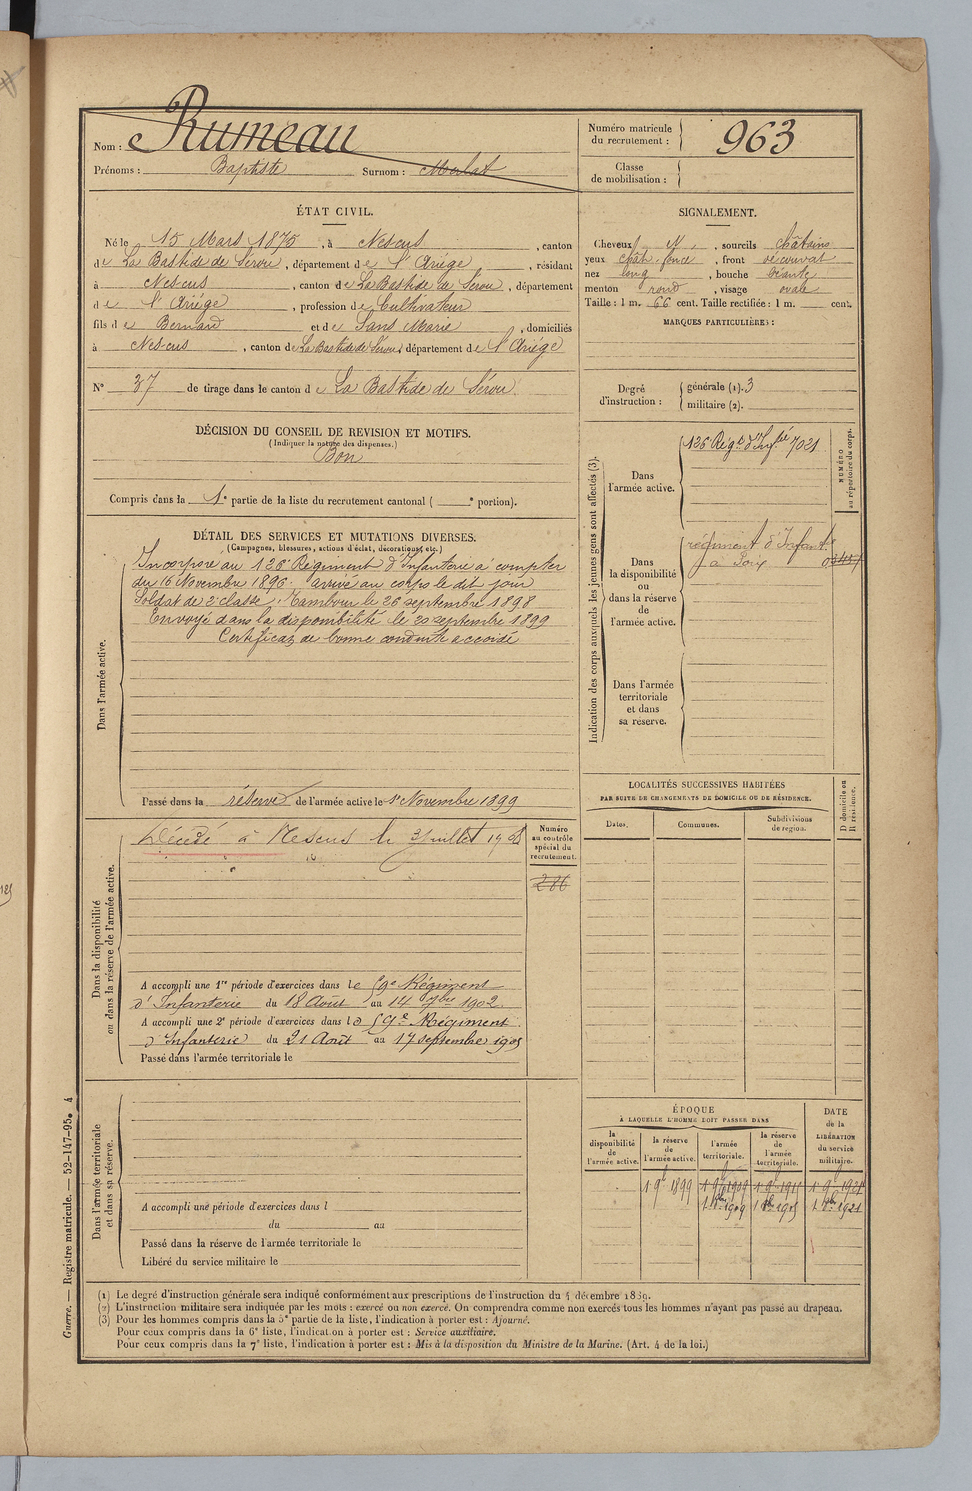 Nom : Rumeau
Prénoms : Baptiste Surnom : Merlat
Numéro matricule du recrutement : 963
Classe de mobilisation :
ÉTAT CIVIL.
Né le 15 Mars 1875, à Nescus, canton
de La Bastide de Sérou, département de l'Ariège, résidant
à Nescus, canton de La Bastide de Sérou, département
de l'Ariège, profession de Cultivateur
fils de Bernard et de Sans Marie, domiciliés
à Nescus, canton de La Bastide de Sérou, département de l'Ariège
N° 37 de tirage dans le canton de La Bastide de Sérou.
SIGNALEMENT.
Cheveux et, sourcils châtains
yeux chât. foncé, front découvert
nez long, bouche béante
menton rond, visage ovale
Taille : 1 m. 66 cent. Taille rectifiée : 1 m. cent.
MARQUES PARTICULIÈRES :
Degré d'instruction : générale (1). 3
militaire (2).
DÉCISION DU CONSEIL DE REVISION ET MOTIFS.
(Indiquer la nature des dispenses.)
Bon
Compris dans la 1e partie de la liste du recrutement cantonal ( e portion).
DÉTAIL DES SERVICES ET MUTATIONS DIVERSES.
(Campagnes, blessures, actions d'éclat, décorations, etc.)
Dans l'armée active.
Incorporé au 126e Régiment d'Infanterie à compter
du 16 Novembre 1896. arrivé au corps le dit jour
Soldat de 2e classe. Tambour le 26 septembre 1898
Envoyé dans la disponibilité le 20 septembre 1899
Certificat de bonne conduite accordé
Passé dans la réserve de l'armée active le 1er Novembre 1899
Indication des corps auxquels les jeunes gens sont affectés (3).
NUMÉRO au répertoire du corps.
Dans l'armée active.
126 Régt d'Infie 7021
Dans la disponibilité ou dans la réserve de l'armée active.
régiment d'Infante
à Foix
Dans l'armée territoriale et dans sa réserve.
LOCALITÉS SUCCESSIVES HABITÉES
PAR SUITE DE CHANGEMENTS DE DOMICILE OU DE RÉSIDENCE.
Dates. Communes. Subdivisions de région. D domicile ou R résidence.
Dans la disponibilité ou dans la réserve de l'armée active.
Décédé à Nescus le 3 Juillet 1908
Numéro au contrôle spécial du recrutement.
286
A accompli une 1re période d'exercices dans le 59e Régiment
d'Infanterie du 18 Août au 14 7bre 1902.
A accompli une 2e période d'exercices dans le 59e Régiment
d'Infanterie du 21 Août au 17 septembre 1905
Passé dans l'armée territoriale le
Dans l'armée territoriale et dans sa réserve.
A accompli une période d'exercices dans l
du au
Passé dans la réserve de l'armée territoriale le
Libéré du service militaire le
ÉPOQUE
À LAQUELLE L'HOMME DOIT PASSER DANS
la disponibilité de l'armée active. la réserve de l'armée active. l'armée territoriale. la réserve de l'armée territoriale. DATE de la LIBÉRATION du service militaire.
1 9b 1899 1 9b 1909 1 9b 1915 1 9b 1921
1 8bre 1909 1 8bre 1915 1 8bre 1921
(1) Le degré d'instruction générale sera indiqué conformément aux prescriptions de l'instruction du 4 décembre 1889.
(2) L'instruction militaire sera indiquée par les mots : exercé ou non exercé. On comprendra comme non exercés tous les hommes n'ayant pas passé au drapeau.
(3) Pour les hommes compris dans la 5e partie de la liste, l'indication à porter est : Ajourné.
Pour ceux compris dans la 6e liste, l'indication à porter est : Service auxiliaire.
Pour ceux compris dans la 7e liste, l'indication à porter est : Mis à la disposition du Ministre de la Marine. (Art. 4 de la loi.)
Guerre. — Registre matricule. — 52-147-95. 4